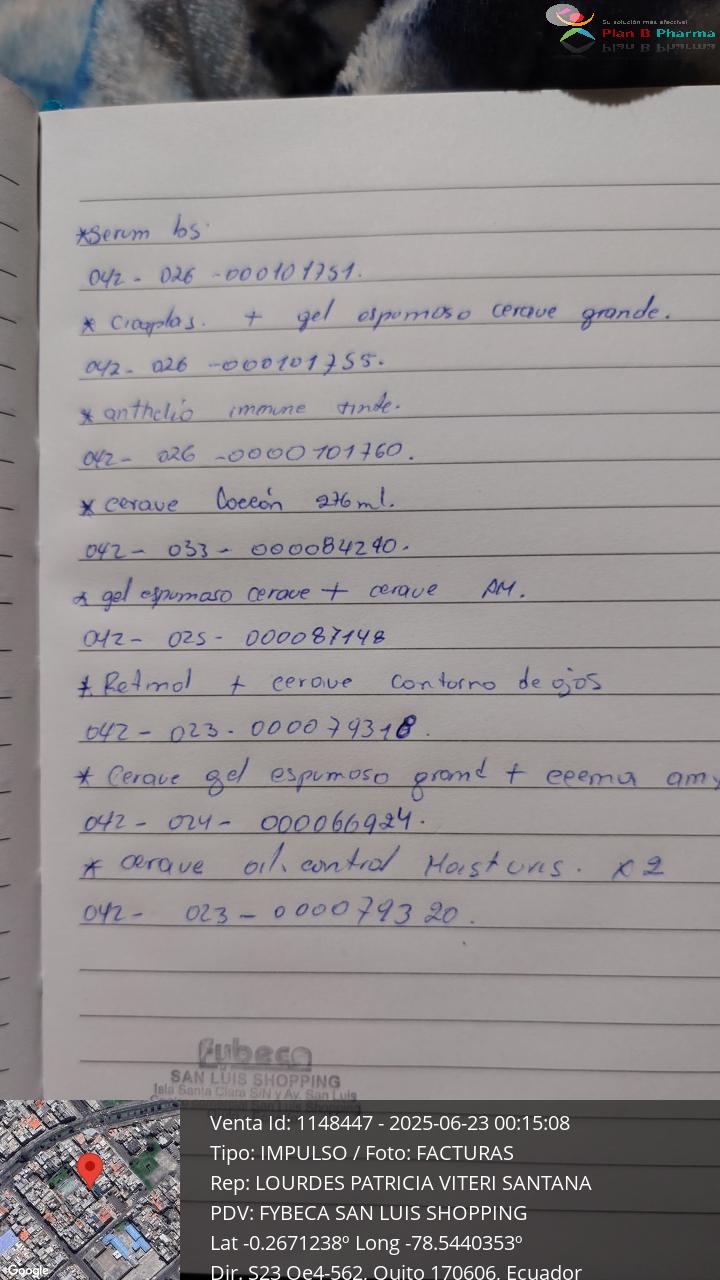 Su solución más efectiva!
Plan B Pharma
*Serum bs.
042 - 026 -000101751.
* Cicaplas. + gel espumoso cerave grande.
042 - 026 -000101755.
* anthelio immune tinde.
042 - 026 -0000101760.
* cerave Loción 236ml.
042 - 033 - 000084240.
* gel espumaso cerave + cerave AM.
042 - 025 - 000087148
* Retinol + cerave contorno de ojos
042 - 023 - 000079318.
* Cerave gel espumoso grand +
042 - 024 - 000066924.
* cerave oil. control Moisturis. x2
042 - 023 - 000079320.
fybeca
SAN LUIS SHOPPING
Isla Santa Clara S/N y Av. San Luis
Venta Id: 1148447 - 2025-06-23 00:15:08
Tipo: IMPULSO / Foto: FACTURAS
Rep: LOURDES PATRICIA VITERI SANTANA
PDV: FYBECA SAN LUIS SHOPPING
Lat -0.2671238º Long -78.5440353º
Dir. S23 Oe4-562, Quito 170606, Ecuador
Google